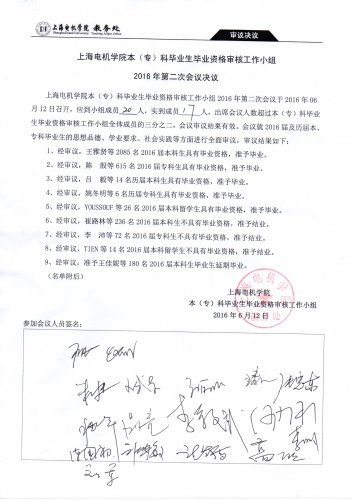 上海电机学院 教务处
Shanghai Dianji University Teaching Affairs Office
审议决议
上海电机学院本（专）科毕业生毕业资格审核工作小组
2016年第二次会议决议
上海电机学院本（专）科毕业生毕业资格审核工作小组 2016 年第二次会议于 2016 年 06
月 12 日召开，应到小组成员 20 人，实到成员 17 人，出席会议人数超过本（专）科毕业
生毕业资格审核工作小组全体成员的三分之二，会议审议结果有效。会议就 2016 届及历届本、
专科毕业生的思想品德、学业要求、社会实践等方面进行全面审议，审议结果如下：
1、经审议，王雅赟等 2085 名 2016 届本科生具有毕业资格，准予毕业。
2、经审议，陈 毅等 615 名 2016 届专科生具有毕业资格，准予毕业。
3、经审议，吕 毅等 14 名历届本科生具有毕业资格，准予毕业。
4、经审议，姚冬明等 6 名历届专科生具有毕业资格，准予毕业。
5、经审议，YOUSSOUF 等 26 名 2016 届本科留学生具有毕业资格，准予毕业。
6、经审议，崔路林等 236 名 2016 届本科生不具有毕业资格，准予结业。
7、经审议，李 沛等 72 名 2016 届专科生不具有毕业资格，准予结业。
8、经审议，TIEN 等 14 名 2016 届本科留学生不具有毕业资格，准予结业。
9、经审议，准予王佳妮等 180 名 2016 届本科生毕业生延期毕业。
（名单附后）
上海电机学院
本（专）科毕业生毕业资格审核工作小组
2016 年 6 月 12 日
参加会议人员签名：